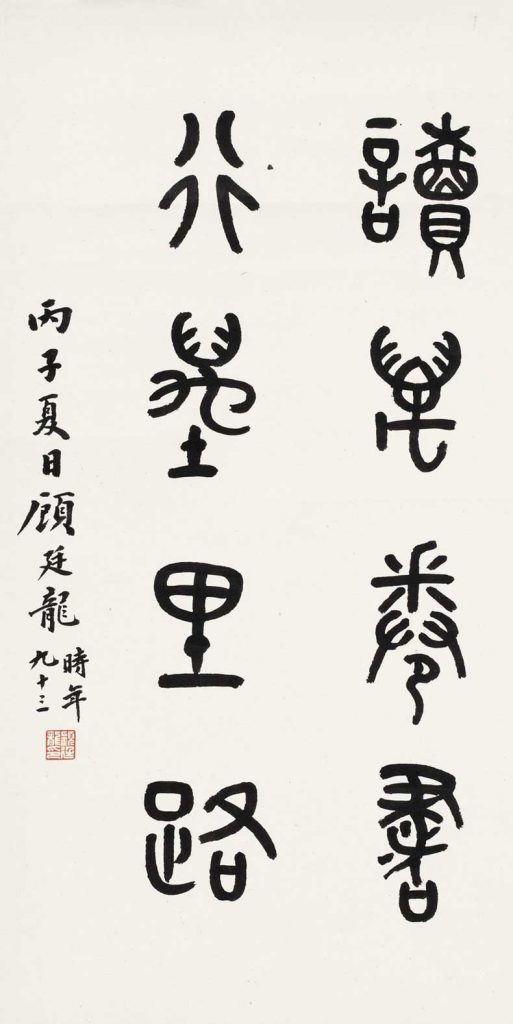 讀萬卷書
行萬里路
丙子夏日顧廷龍時年九十三